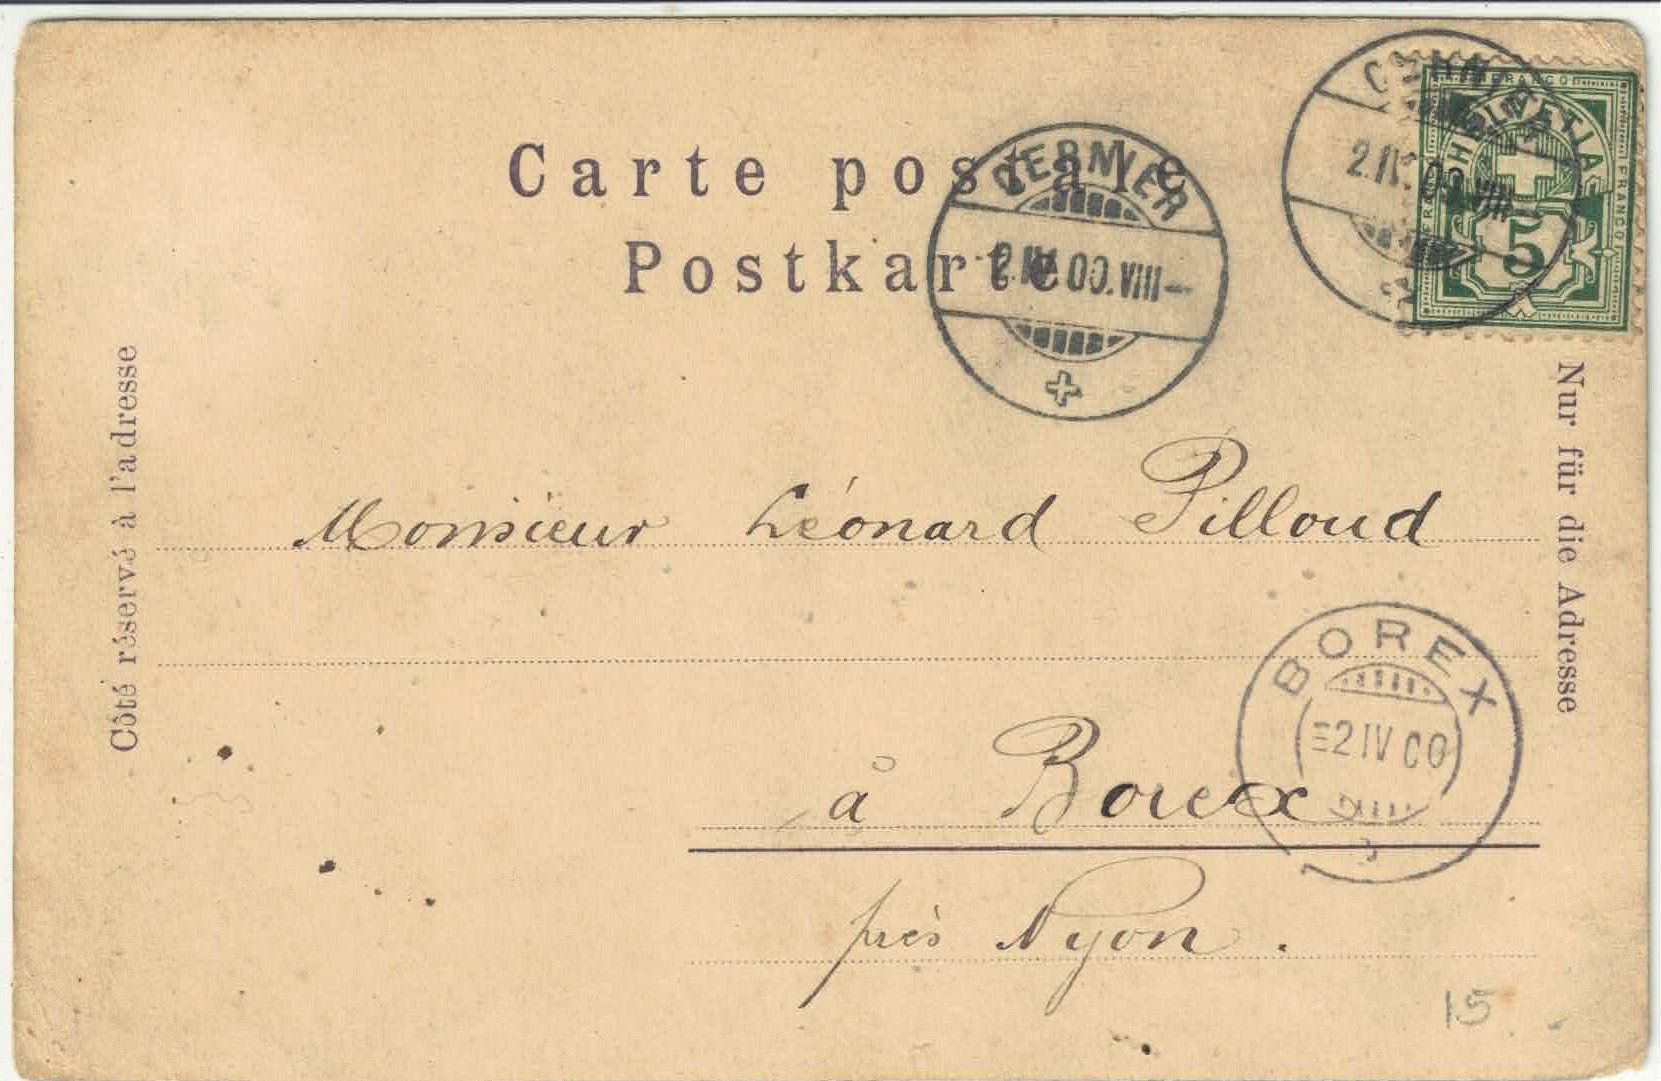 Carte postale
Postkarte
CERNIER
2.IV.00.VIII–
CERNIER
2.IV.00.VIII
FRANCO
HELVETIA
FRANCO
FRANCO
5
Côté réservé à l'adresse
Nur für die Adresse
Monsieur Léonard Pilloud
BOREX
2 IV 00
à Borex
près Nyon.
15